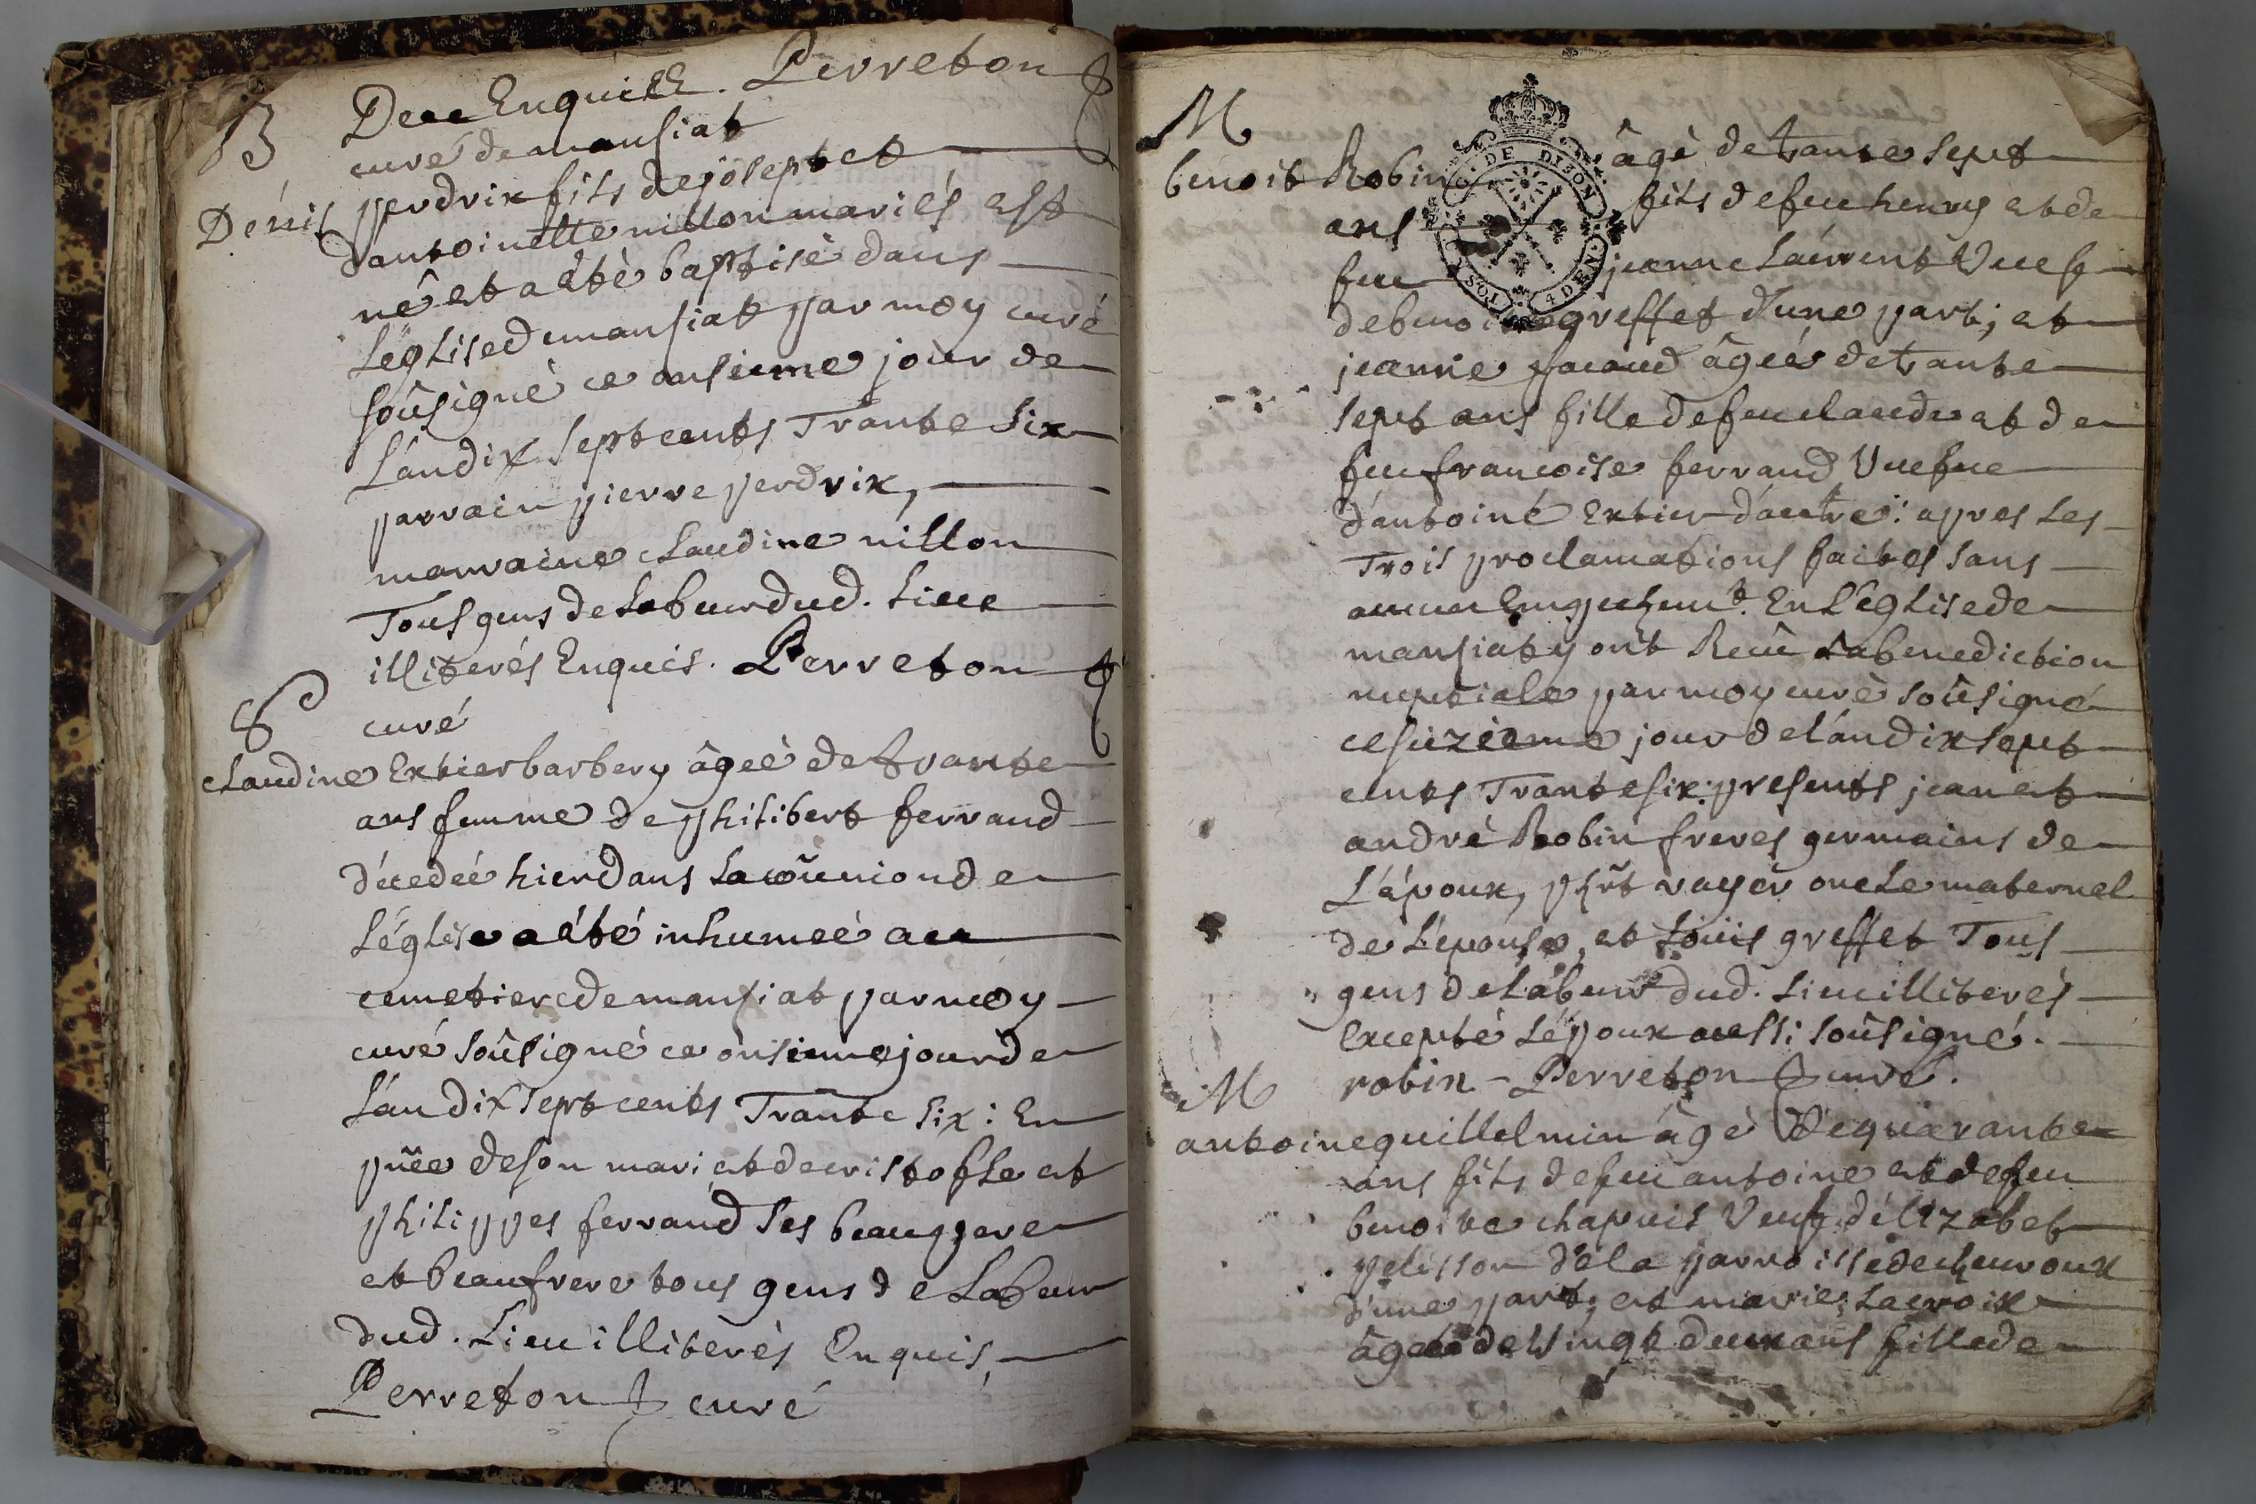 Enquis. Perreton
curé de mansiat
B
Denis perdrix fils de joseph et
dantoinette nillon mariés est
né et a été baptisé dans
Léglise de mansiat par moy curé
soûsigné ce onsieme jour de
Lan dix sept cents Trante six
parrain pierre perdrix,
marraine claudine nillon
Tous gens de Labeur dud. Lieu
illiterés Enquis. Perreton
curé
S
claudine Extier barbery âgeè de trante
ans femme de philibert ferrand
décedeé hier dans La com̃union de
Léglise a été inhumeè au
cemetiere de mansiat par moy
curé soûsigné ce onsieme jour de
Lan dix sept cents Trante six : En
pñce de son mari et de cristofle et
philippes ferrand ses beauppere
et beaufrere tous gens de Labeur
dud. Lieu illiterés Enquis,
Perreton curé
M
benoit Robin âgè de trante sept
ans fils de feu henry et de
feu jeanne Laurent Veuf
de benoite greffet d'une part; et
jeanne pacaud âgeé de trante
sept ans fille de feu claude et de
feu francoise ferrand Veufue
d'antoine Extier d'autre : apres Les
Trois proclamations faites sans
aucun Empechemt. En L'église de
mansiat y ont Recû La benediction
nuptiale par moy curé soûsigné
ce suzieme jour de lan dix sept
cents Trante six : presents jean et
andrè Robin freres germains de
L'époux, phit rayer oncle maternel
de L'epouse, et Loüis greffet Tous
gens de Labeur dud. Lieu illiterés
Excepté Lépoux aussi soûsigné.
robin - Perreton curé.
M
antoine guillelmin âgè de quarante
ans fils de feu antoine et de feu
benoite chapuis Veuf d'élizabet
pelisson de la parroisse de cheuroux
d'une part; et marie Lacroix
âgeé de Vingt deux ans fille de
DE DIJON
4 DEN.